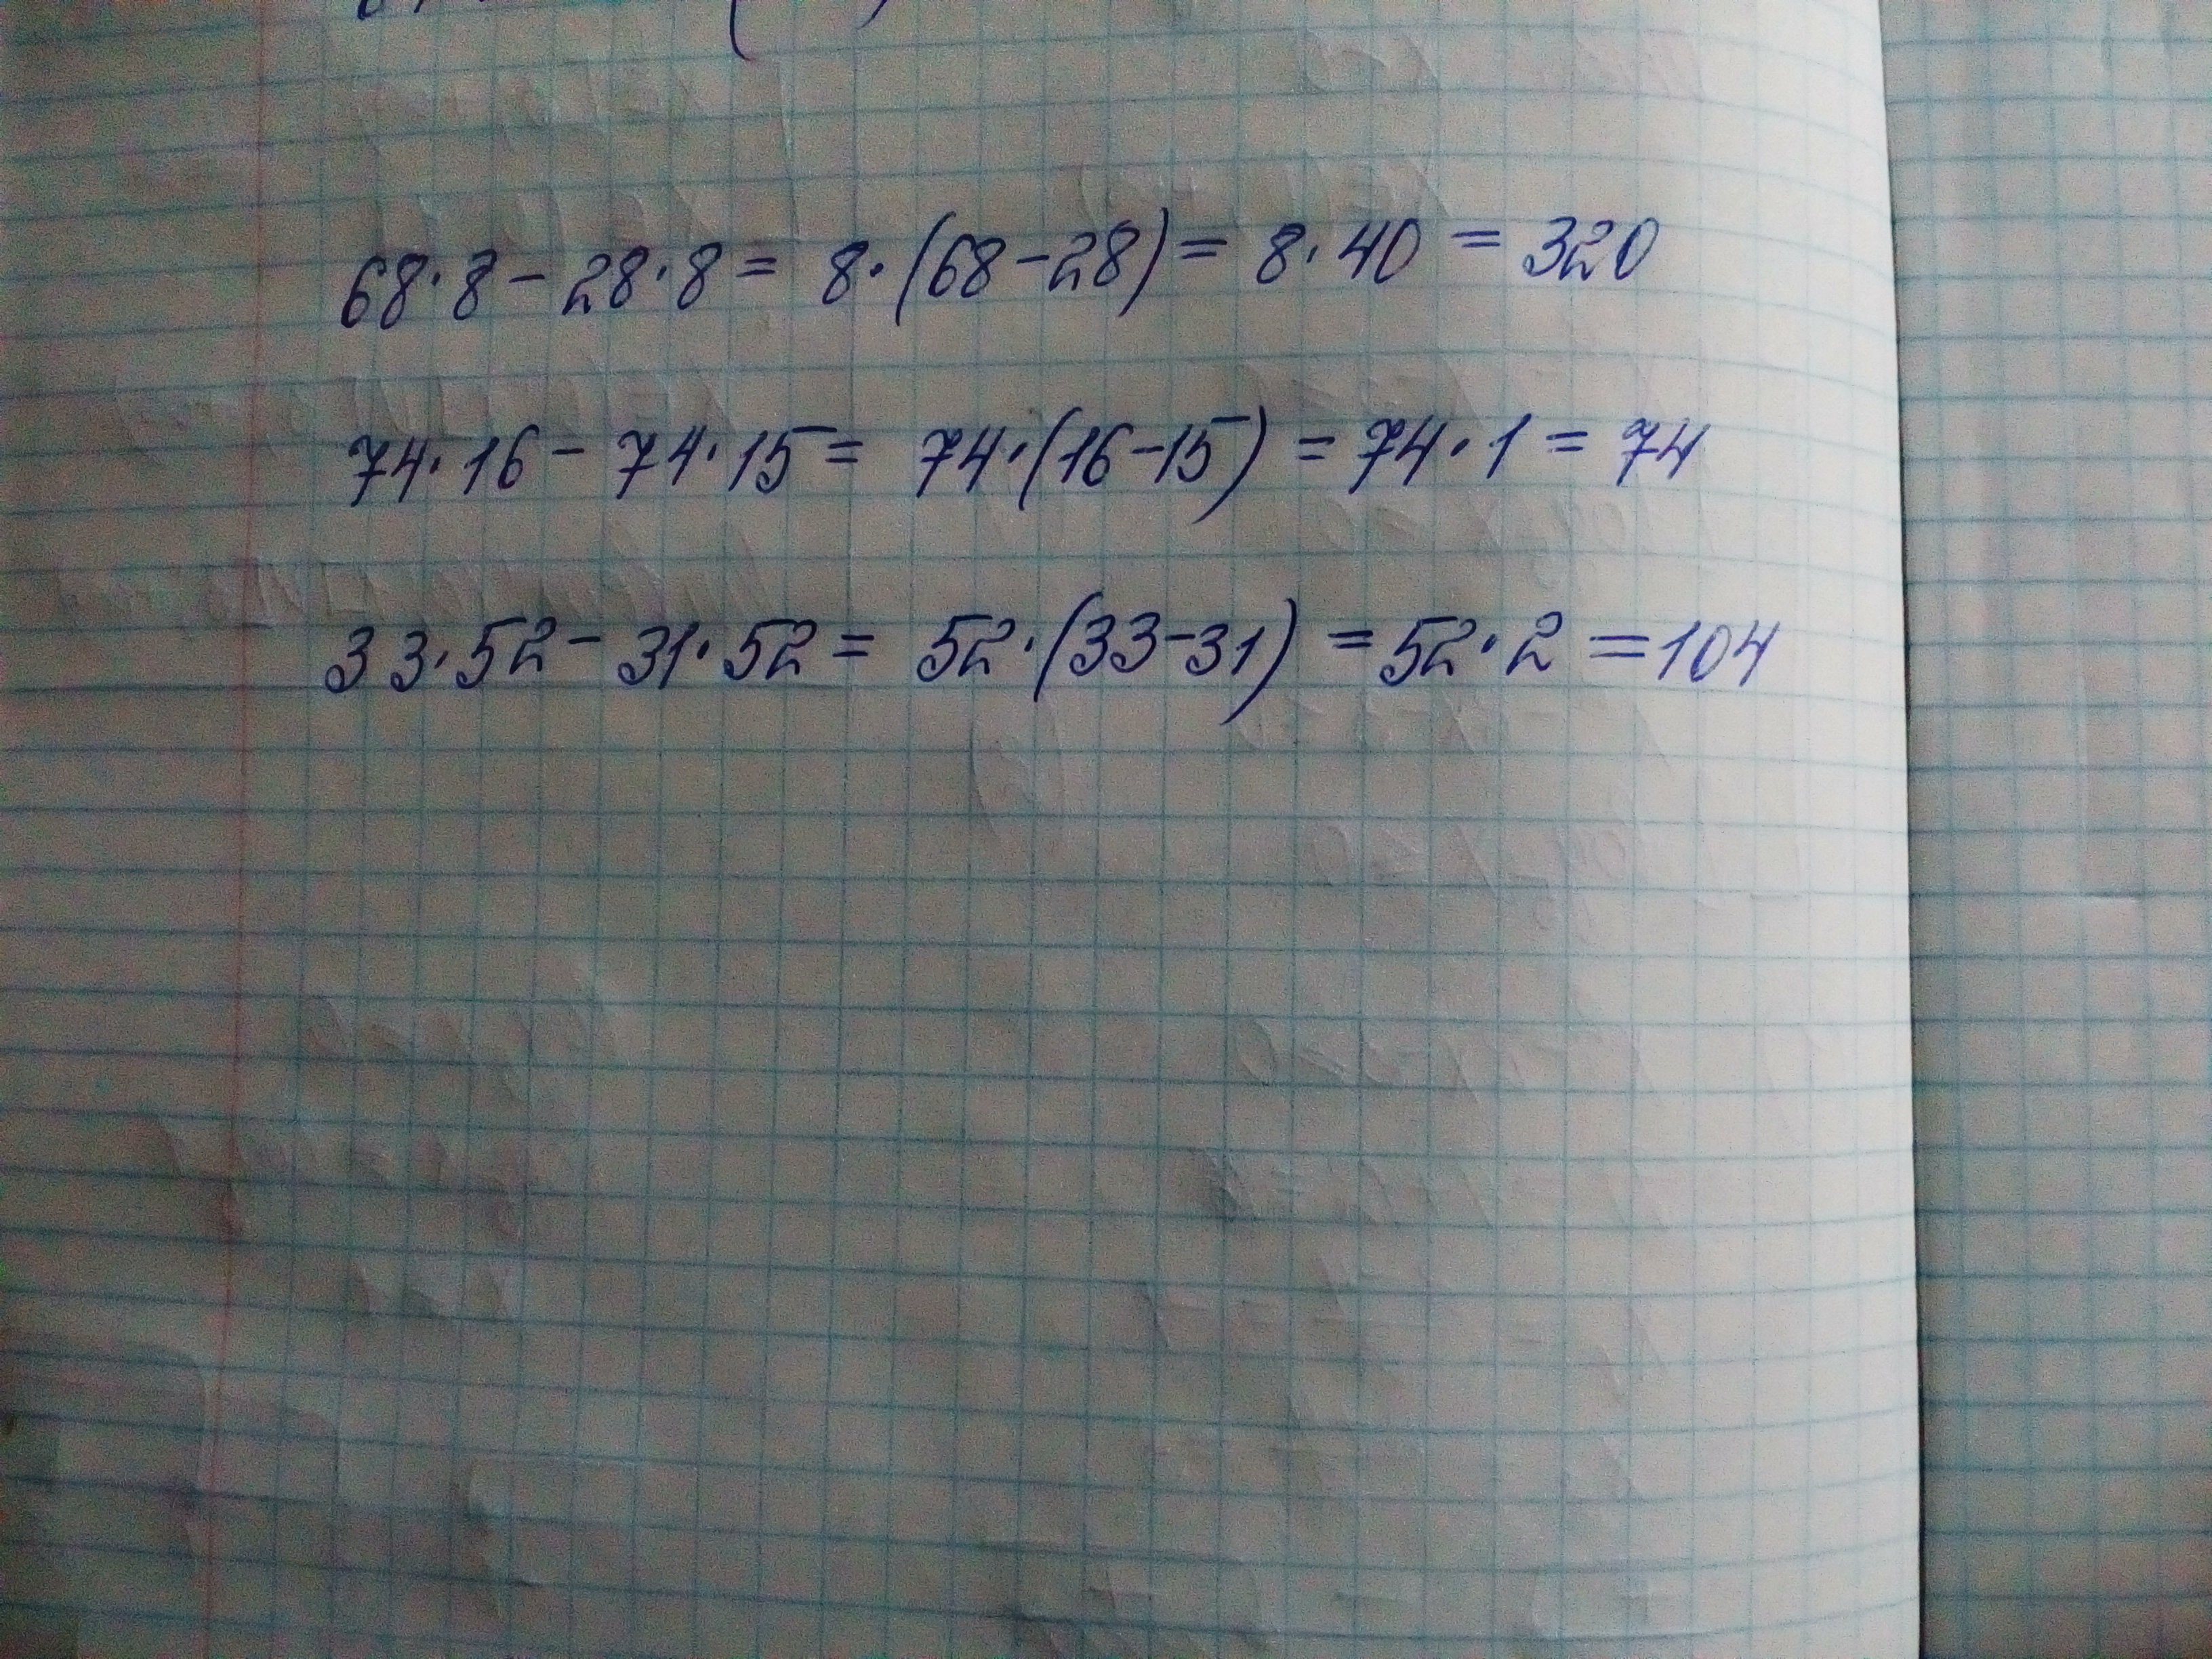 68·8-28·8= 8·(68-28)= 8·40=320
74·16-74·15= 74·(16-15)=74·1=74
33·52-31·52= 52·(33-31)=52·2=104